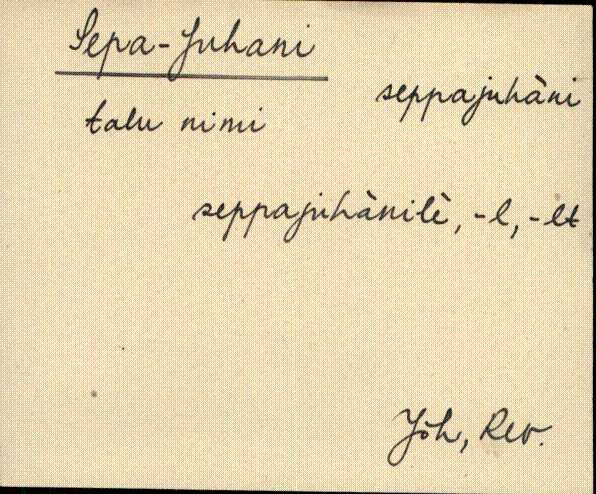 Sepa-Juhani
seppajuhàni
talu nimi
seppajuhànilè, -l, -lt
Jõh, Rev.